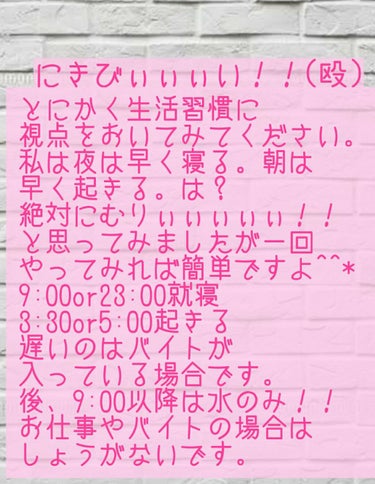 にきびぃぃぃい！！(殴)
とにかく生活習慣に
視点をおいてみてください。
私は夜は早く寝る。朝は
早く起きる。は？
絶対にむりぃぃぃぃぃ！！
と思ってみましたが一回
やってみれば簡単ですよ^^*
9:00or23:00就寝
3:30or5:00起きる
遅いのはバイトが
入っている場合です。
後、9:00以降は水のみ！！
お仕事やバイトの場合は
しょうがないです。